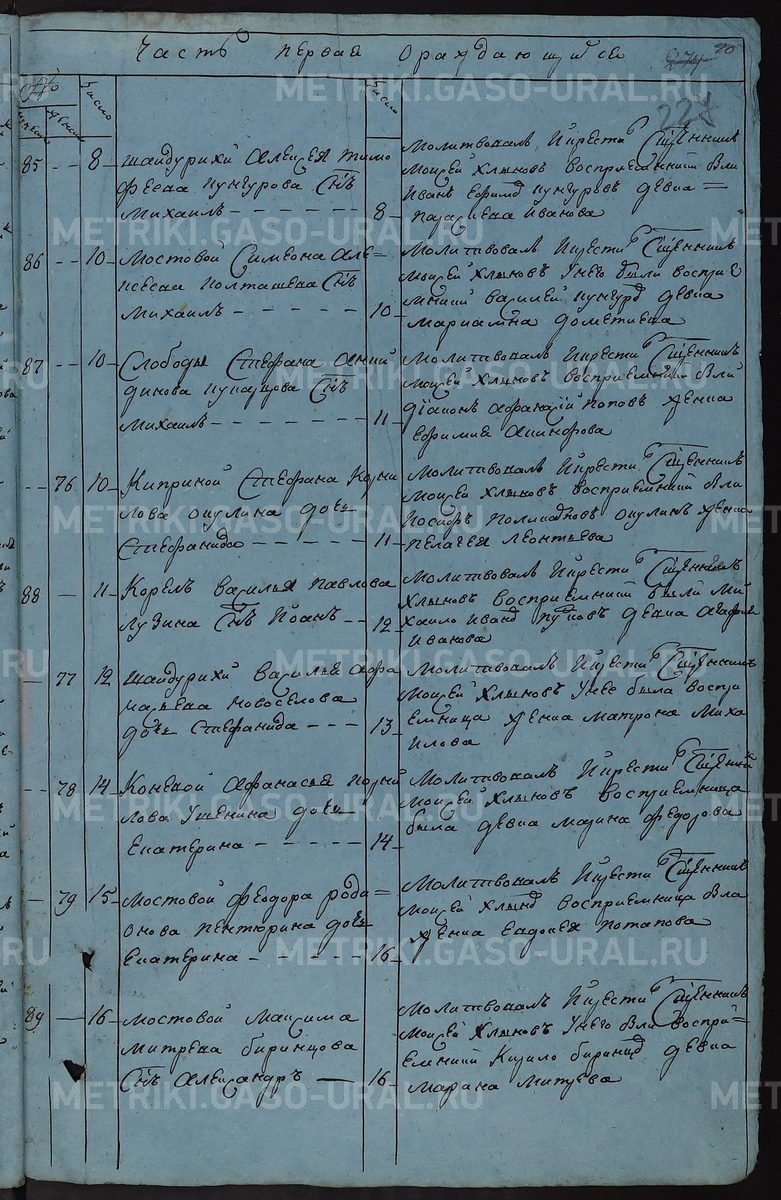 Часть первая ораждающихся
20
227
№
число
число
85 -- 8 Шайдурихи Алексея Тимо
фѣева Кунгурова Сн҃ъ
Михаилъ
8
Молитвовалъ Икрести Сщ҃енникъ
Моисей Хлыновъ восприемники были
Иванъ Кунгуровъ девка
Иванова
86 -- 10 Мостовой Симеона Але
ксеева Полташева Сн҃ъ
Михаилъ
10
Молитвовалъ Икрести Сщ҃енникъ
Моисей Хлыновъ Унего были восприе
мники Василей Кунгур девка
Марианна Дометиева
87 -- 10 Слободы Стефана
Сн҃ъ
Михаилъ
11
Молитвовалъ Икрести Сщ҃енникъ
Моисей Хлыновъ восприемники были
диаконъ Афанасий Поповъ женка
Ефимия
-- 76 10 Киприной Стефана Корни
лова Окулина дочь
Стефанида
11
Молитвовалъ Икрести Сщ҃енникъ
Моисей Хлыновъ восприемники были
Иосифъ Окулинъ женка
Пелагея Леонтьева
88 - 11 Корелъ Василья Павлова
Лузина Сн҃ъ Иоанъ
12
Молитвовалъ Икрести Сщ҃енникъ
Хлыновъ восприемники были Ми
хаило Иванов девка
Иванова
- 77 12 Шайдурихи Василья Афа
насьева Новоселова
дочь Стефанида
13
Молитвовалъ Икрести Сщ҃енникъ
Моисей Хлыновъ Унее была воспри
емница женка Матрона Миха
илова
-- 78 14 Конской Афанасья Корни
лова Ушенина дочь
Екатерина
14
Молитвовалъ Икрести Сщ҃енникъ
Моисей Хлыновъ восприемница
была девка Марина Федорова
- 79 15 Мостовой Феодора Роди
онова Пентюрина дочь
Екатерина
16
Молитвовалъ Икрести Сщ҃енникъ
Моисей Хлынов восприемница была
женка Евдокея Потапова
89 - 16 Мостовой Максима
Митрева Биринцова
Сн҃ъ Александръ
16
Молитвовалъ Икрести Сщ҃енникъ
Моисей Хлыновъ Унего были воспри
емники Кирило Биринцов девка
Марина Митрева
METRIKI.GASO-URAL.RU